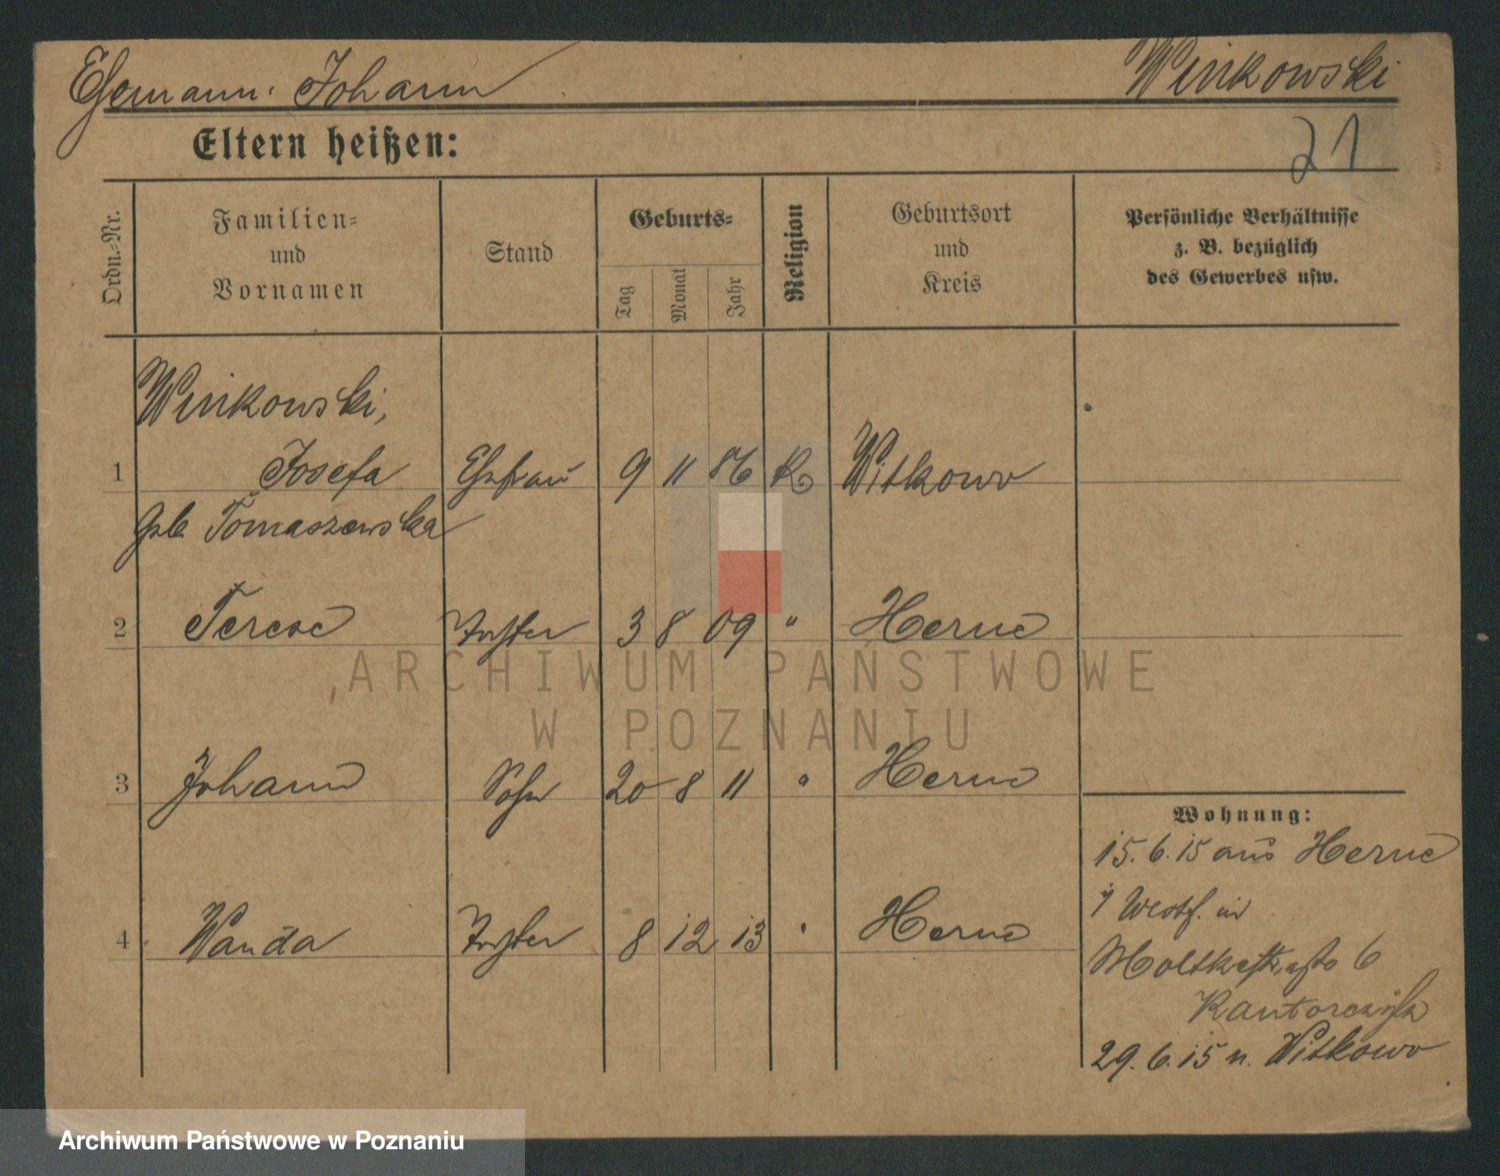 Ehemann: Johann Winkowski
21
Eltern heißen:
Ordn.-Nr.
Familien-
und
Vornamen
Stand
Geburts-
Tag
Monat
Jahr
Religion
Geburtsort
und
Kreis
Persönliche Verhältnisse
z. B. bezüglich
des Gewerbes usw.
Winkowski,
1 Josefa Ehefrau 9 11 86 K Witkowo
geb Tomaszewska
2 Terese Tochter 3 8 09 " Herne
3 Johann Sohn 20 8 11 " Herne
4 Wanda Tochter 8 12 13 " Herne
Wohnung:
15. 6. 15 aus Herne
Westf. in
6
29. 6. 15 n. Witkowo
ARCHIWUM PAŃSTWOWE
W POZNANIU
Archiwum Państwowe w Poznaniu